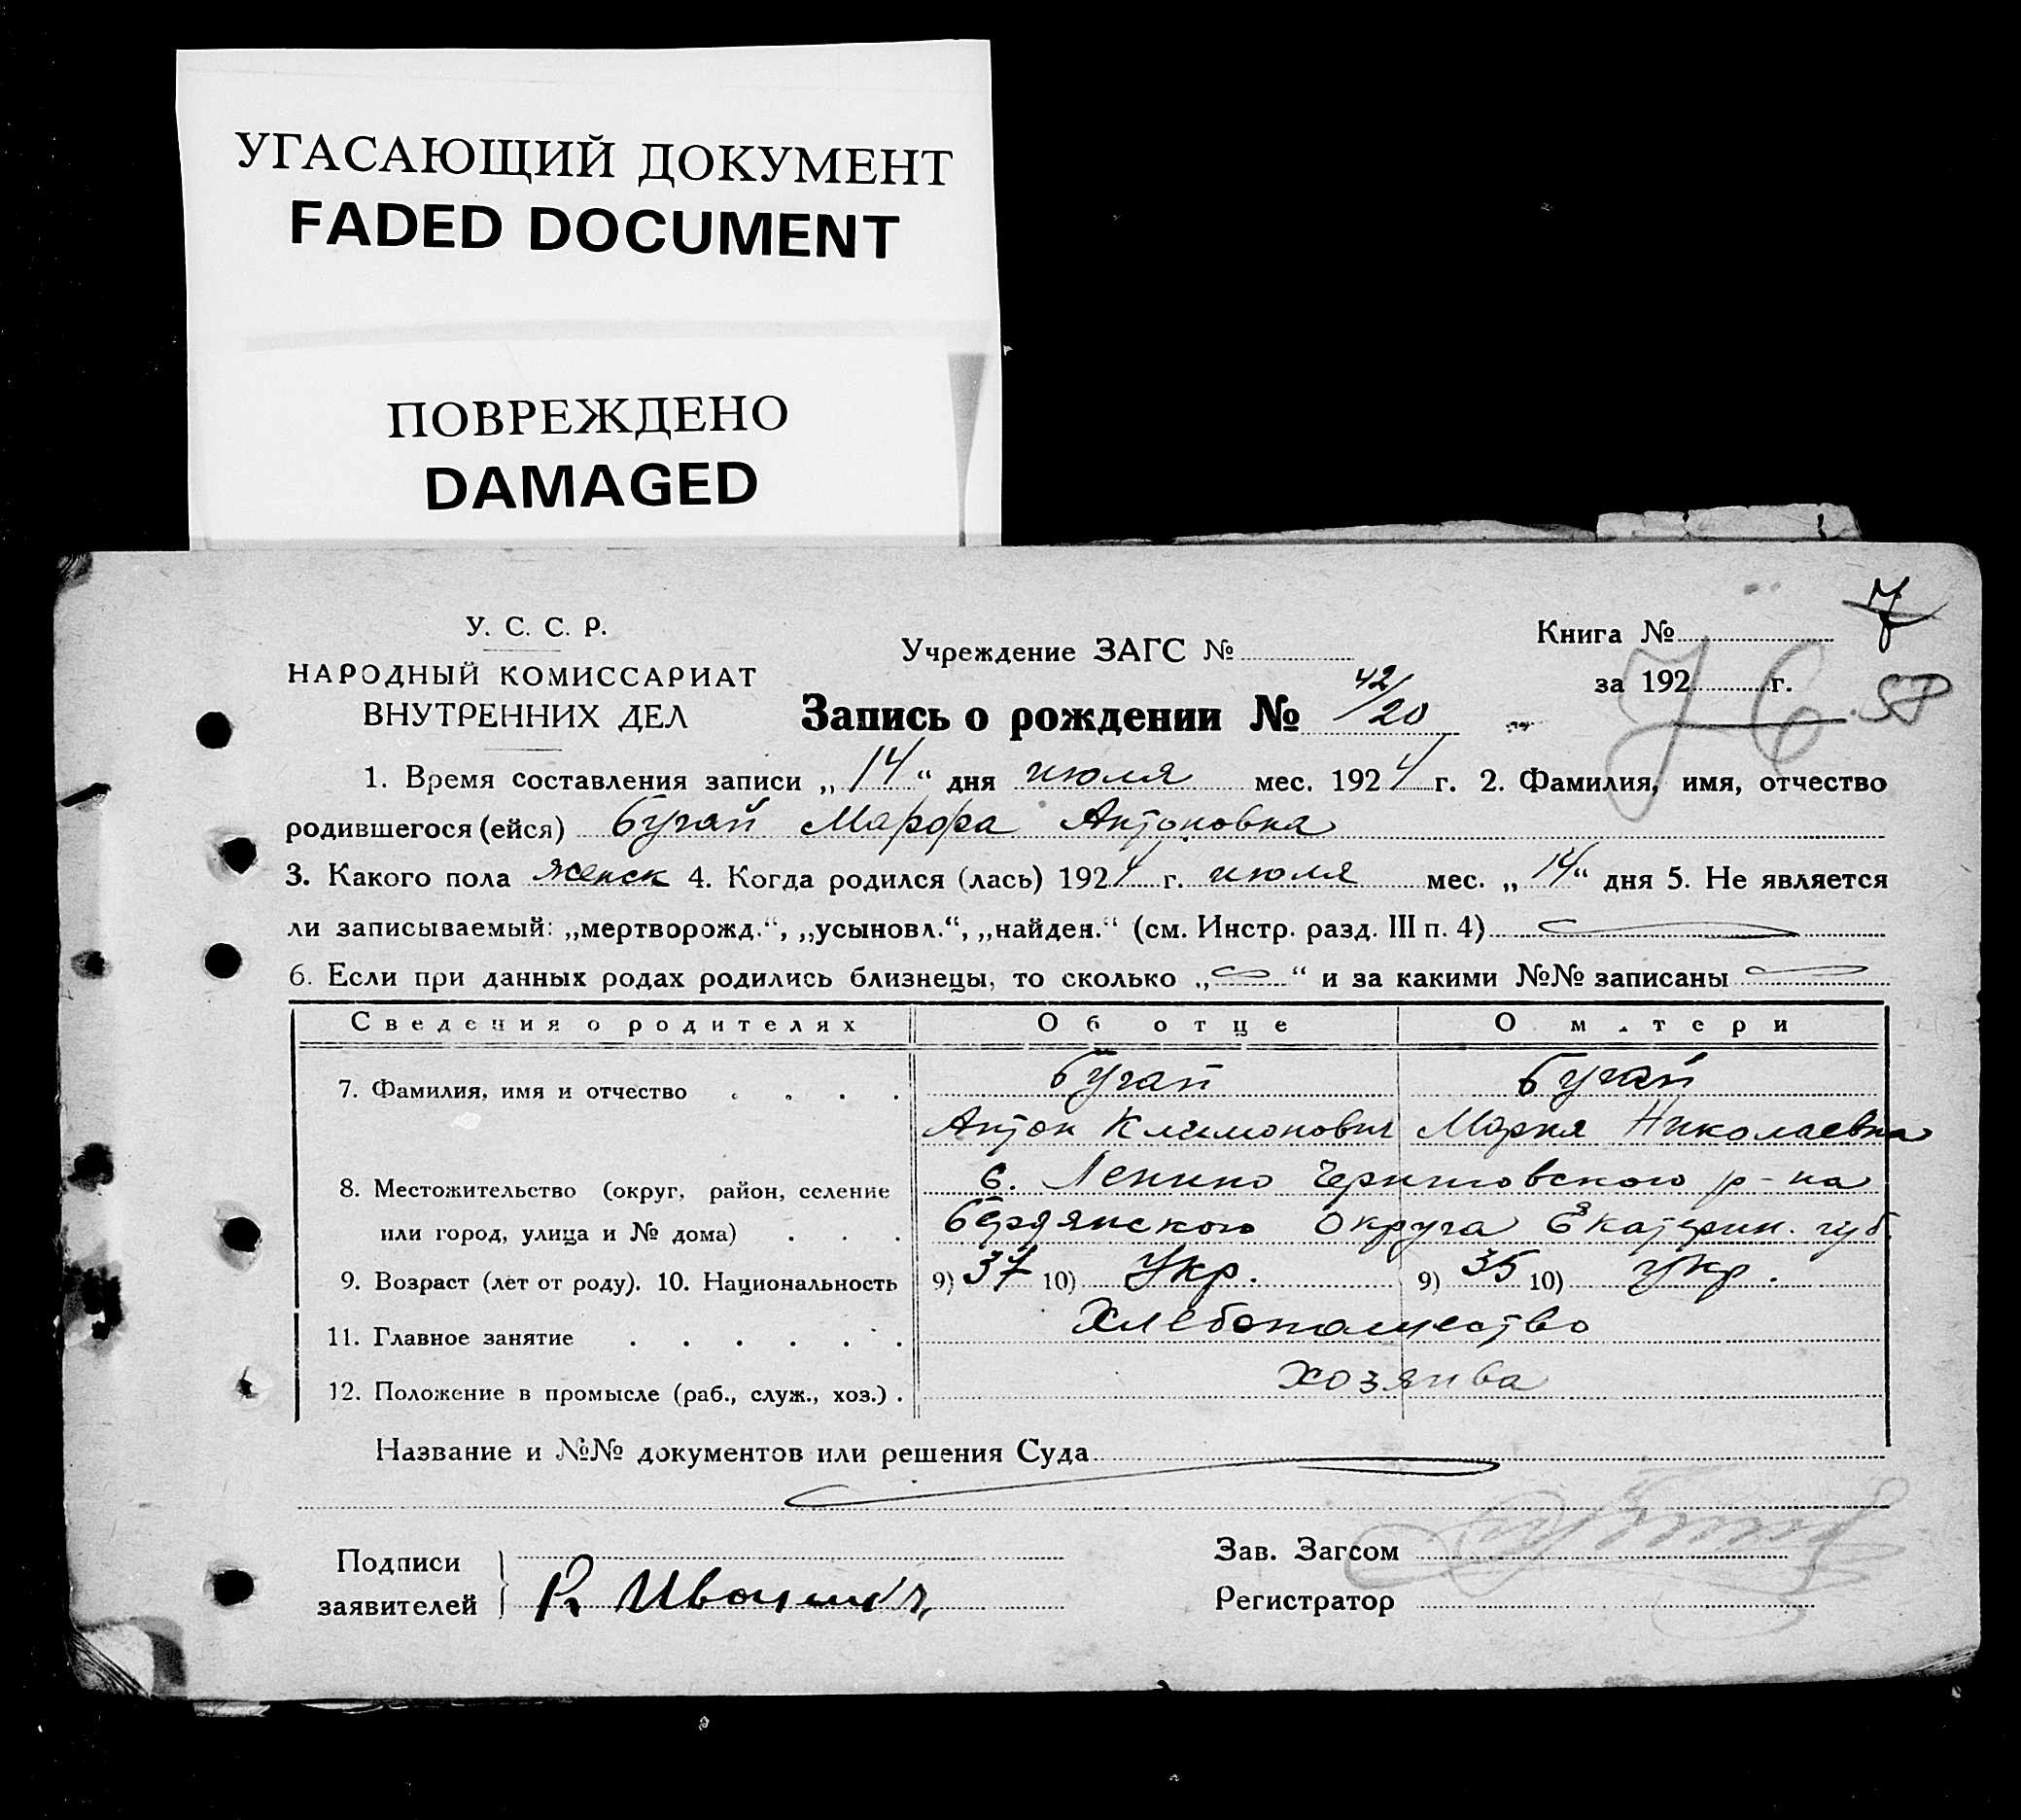 УГАСАЮЩИЙ ДОКУМЕНТ
FADED DOCUMENT
ПОВРЕЖДЕНО
DAMAGED
7
У. С. С. Р.
НАРОДНЫЙ КОМИССАРИАТ
ВНУТРЕННИХ ДЕЛ
Учреждение ЗАГС №
Книга №
за 192 г.
76
58
Запись о рождении № 42/20
1. Время составления записи „14“ дня июля мес. 1924 г. 2. Фамилия, имя, отчество
родившегося (ейся) Бугай Марфа Антоновна
3. Какого пола женск 4. Когда родился (лась) 1924 г. июля мес. „14“ дня 5. Не является
ли записываемый: „мертворожд.“, „усыновл.“, „найден.“ (см. Инстр. разд. III п. 4)
6. Если при данных родах родились близнецы, то сколько „ “ и за какими №№ записаны
Сведения о родителях Об отце О матери
7. Фамилия, имя и отчество . . . . Бугай Бугай
Антон Климонович Мария Николаевна
8. Местожительство (округ, район, селение с. Ленино Черниговского р-на
или город, улица и № дома) . . . Бердянского Округа Екатерин. губ.
9. Возраст (лет от роду). 10. Национальность 9) 37 10) Укр. 9) 35 10) Укр.
11. Главное занятие . . . . . . Хлебопашество
12. Положение в промысле (раб., служ., хоз.) . хозяива
Название и №№ документов или решения Суда
Подписи
заявителей
Зав. Загсом
Регистратор